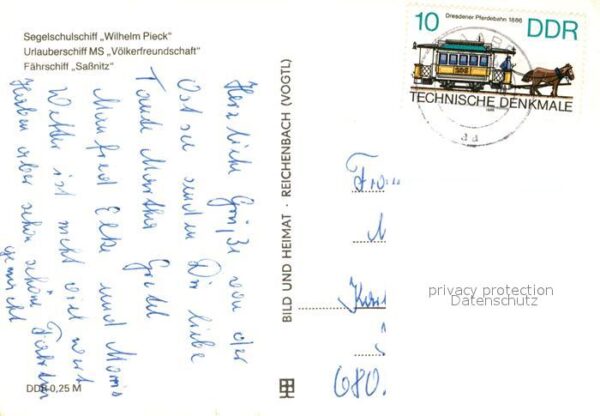 Segelschulschiff „Wilhelm Pieck"
Urlauberschiff MS „Völkerfreundschaft"
Fährschiff „Saßnitz"
Herzliche Grüße von der
Ostsee senden Dir liebe
Tante Martha Gretel
Manfred Elke und Mario
Wetter ist nicht viel wert
Haben aber schon schöne Fahrten
gemacht
DDR 0,25 M
BILD UND HEIMAT · REICHENBACH (VOGTL)
Dresdener Pferdebahn 1886
10 DDR
TECHNISCHE DENKMALE
privacy protection
Datenschutz
680.